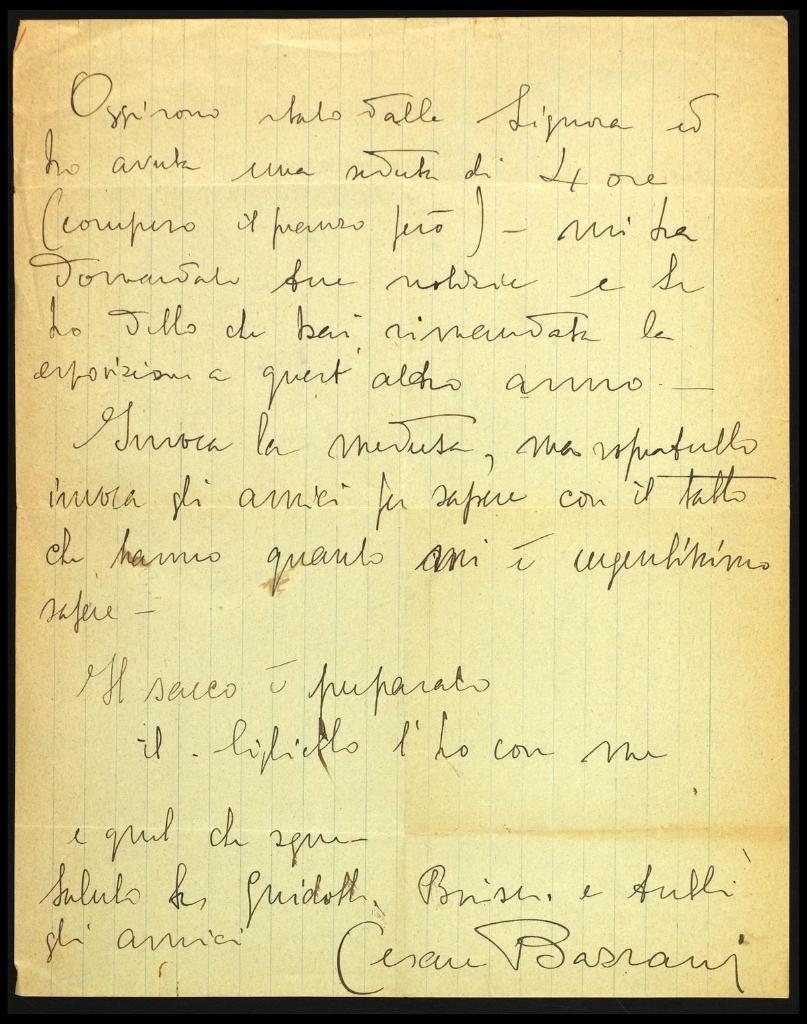 Oggi sono stato dalla Signora ed
ho avuta una seduta di 4 ore
(compreso il pranzo però) – mi ha
domandato tue notizie e le
ho detto che hai rimandata la
esposizione a quest'altro anno. –
Invoca la medusa, ma sopratutto
invoca gli amici per sapere con il tatto
che hanno quanto mi è urgentissimo
sapere –
Il sacco è preparato
il biglietto l'ho con me
e quel che segue –
Saluto te, Guidotti, e tutti
gli amici
Cesare Bazzani